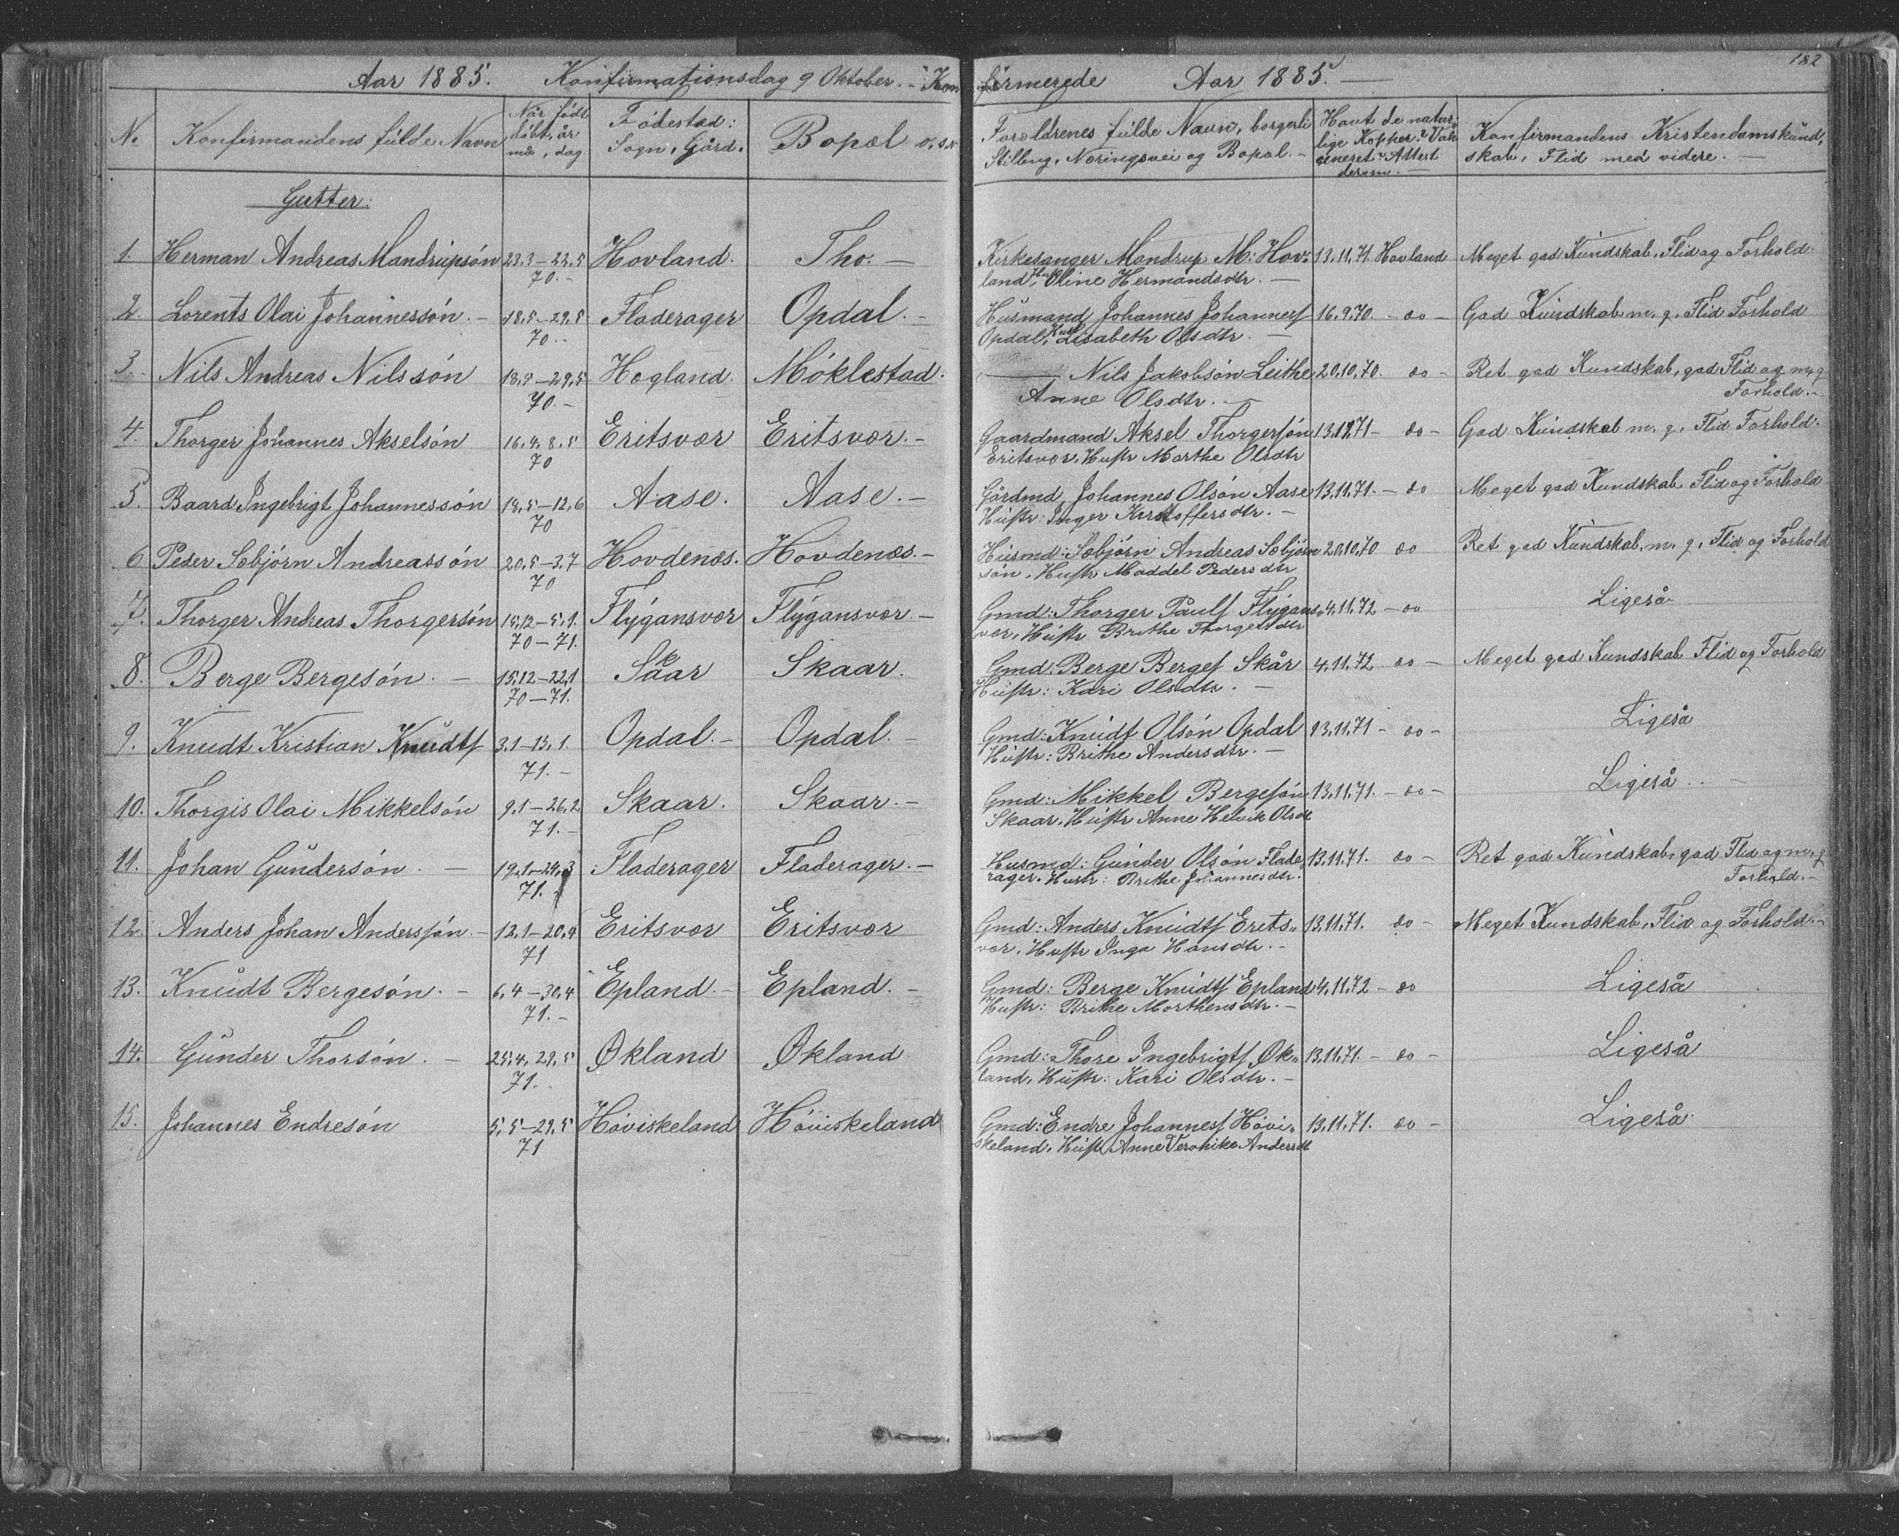 182
Aar 1885. Konfirmationsdag 9 Oktober. - Kon
firmerede Aar 1885
No. Konfirmandens fulde Navn Når født døbt, år md, dag Fødestad: Sogn, Gård. Bopæl o.s.v
Forældrenes fulde Navn, borgerli Stillng, Næringsvei og Bopæl. - Havt de natur: lige Kopper? Vak cineret? Attest derom. - Konfirmandens Kristendomskund, skab, Flid med videre. -
Gutter:
1. Herman Andreas Mandrupsøn 23.3-22.5 70.- Hovland. Tho. -
Kirkesanger Mandrup M: Hov: 13.11.71. Hovland Meget god Kundskab, Flid og Forhold.
land, Hu Oline Hermandsdtr. -
2. Lorents Olai Johannessøn. - 18.5-29.5 70.- Fladerager Opdal. -
Husmand Johannes Johannesf 16.9.70. - do - God Kundskab m. g. Flid Forhold
Opdal, Hust Lisabeth Olsdtr. -
3. Nils Andreas Nilssøn 18.9-29.5 70.- Hogland. Møklestad.
Nils Jakobsøn Leithe 20.10.70 do - Ret god Kundskab, god Flid og m. g
Anne Olsdtr. - Forhold. -
4. Thorger Johannes Akselsøn 16.4.8.5 70 Eritsvær Eritsvær. -
Gaardmand Aksel Thorgersøn 13.11.71 - do - God Kundskab m. g. Flid Forhold.
Eritsvær, Hustr Marthe Olsdtr
5. Baard Ingebrigt Johannessøn 18.5-12.6 70 Aase. Aase. -
Gårdmd, Johannes Olsøn Aase 13.11.71. - do Meget god Kundskab Flid og Forhold
Hustr: Inger Kristoffersdtr. -
6 Peder Sæbjørn Andreassøn 20.5-3.7 70 Hovdenæs. Hovdenæs. -
Husmd: Sæbjørn Andreas Sæbjørn 20.10.70 do Ret god Kundskab, m. g. Flid og Forhold
søn, Hustr Maddel Pedersdtr
7. Thorger Andreas Thorgersøn 15.12-5.1. 70-71. Flygansvær Flygansvær. -
Gmd: Thorger Paulf Flygans 4.11.72 - do Ligeså
vær, Hustr Brithe Thorgersdtr
8. Berge Bergesøn. - 15.12-22.1 70-71. Skaar Skaar.
Gmd: Berge Bergef Skår 4.11.72 do - Meget god Kundskab Flid og Forhold
Hustr: Kari Olsdtr. -
9. Knudt Kristian Knudtf 3.1-15.1. 71.- Opdal. - Opdal. -
Gmd: Knudt Olsøn Opdal 13.11.71 - do - Ligeså
Hustr: Brithe Andersdtr. -
10. Thorgis Olai Mikkelsøn 9.1-26.2 71.- Skaar. Skaar. -
Gmd: Mikkel Bergesøn 13.11.71. - do - Ligeså. -
Skaar, Hustr Anne Helvik Olsdt
11. Johan Gundersøn. - 19.1-24.3 71. Fladerager Fladerager. -
Husmd: Gunder Olsøn Flade 13.11.71. do - Ret god Kundskab, god Flid og m. g
rager. Hustr: Brithe Johannesdtr. Forhold. -
12. Anders Johan Andersøn. - 12.1-20.4 71 Eritsvær Eritsvær
Gmd: Anders Knudtf Erits 13.11.71. do - Meget Kundskab, Flid og Forhold. -
vær, Hustr Inga Hansdtr. -
13. Knudt Bergesøn. - 6.4-30.4 71.- Epland. - Epland. -
Gmd: Berge Knudtf Epland 4.11.72 - do Ligeså
Hustr: Brithe Morthensdtr. -
14. Gunder Thorsøn. - 25.4.29.5 71.- Økland Økland
Gmd: Thore Ingebrigtf Øk 13.11.71. - do - Ligeså
land, Hustr: Kari Olsdtr. -
15. Johannes Endresøn 5.5-29.5 71 Høviskeland Høviskeland
Gmd: Endre Johannesf Høvi 13.11.71. do - Ligeså.
skeland, Hustr Anne Veronike Andersdt